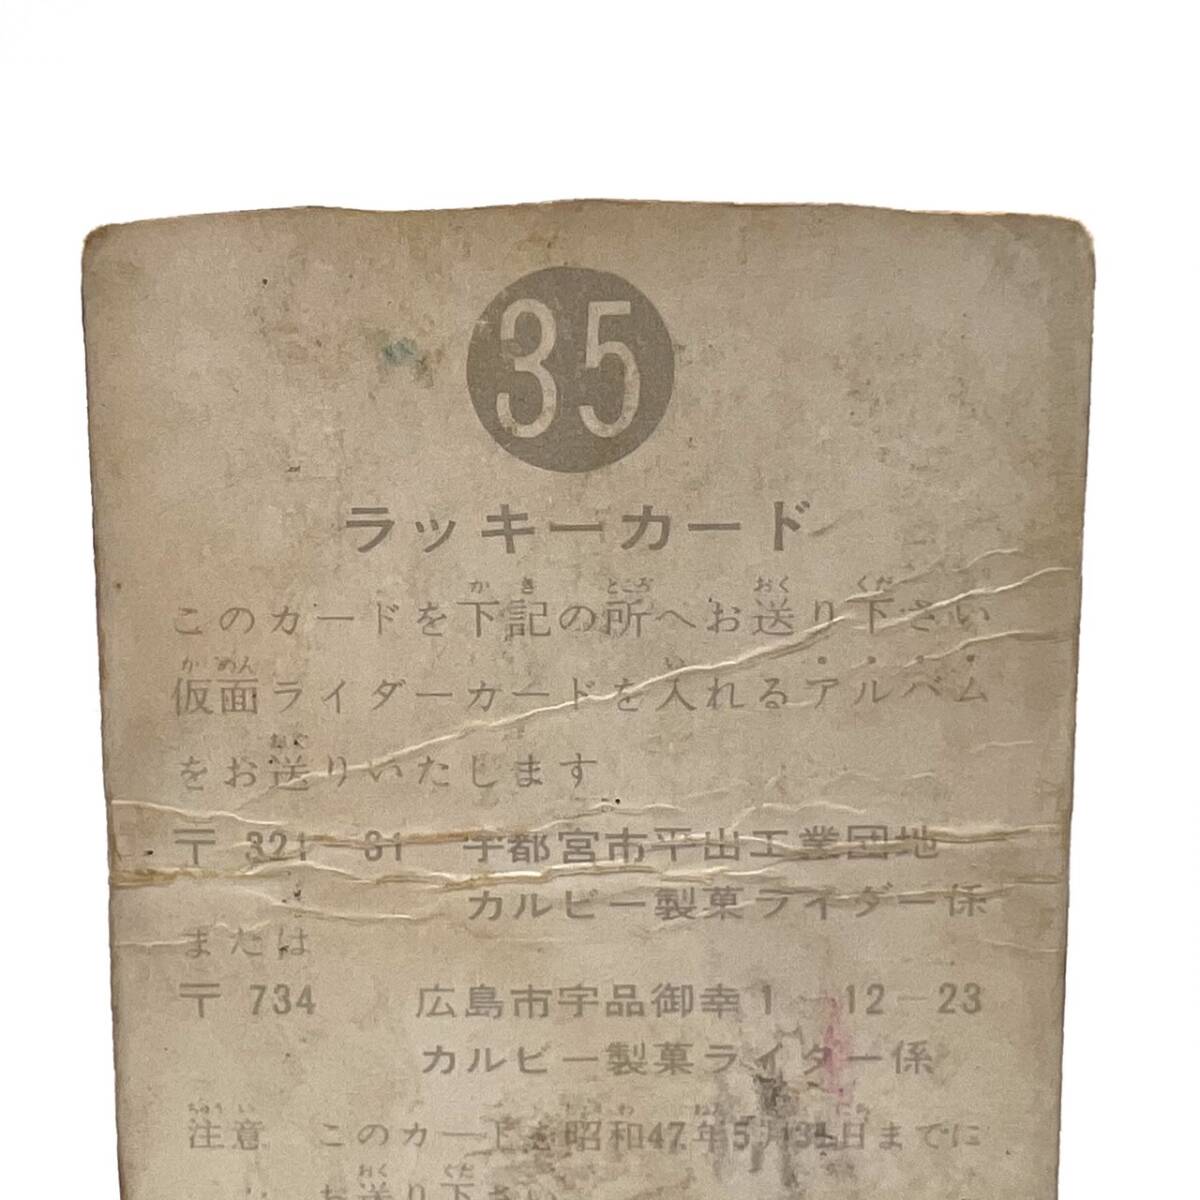 35
ラッキーカード
このカードを下記の所へお送り下さい
仮面ライダーカードを入れるアルバム
をお送りいたします
〒 321-31 宇都宮市平出工業団地
カルビー製菓ライダー係
または
〒 734 広島市宇品御幸1-12-23
カルビー製菓ライダー係
注意 このカードを昭和47年5月31日までに
お送り下さい